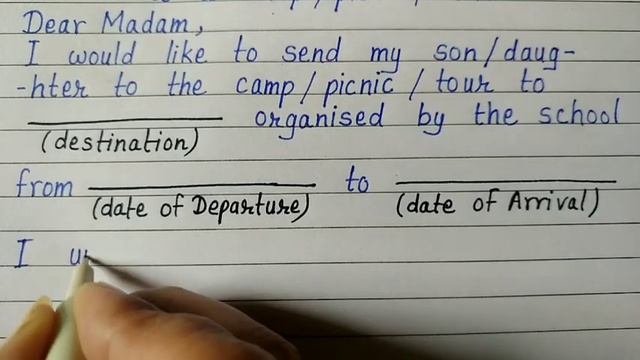 Dear Madam,
I would like to send my son/daug-
-hter to the camp/picnic/tour to
____________ organised by the school
(destination)
from ____________ to ____________
(date of Departure) (date of Arrival)
I